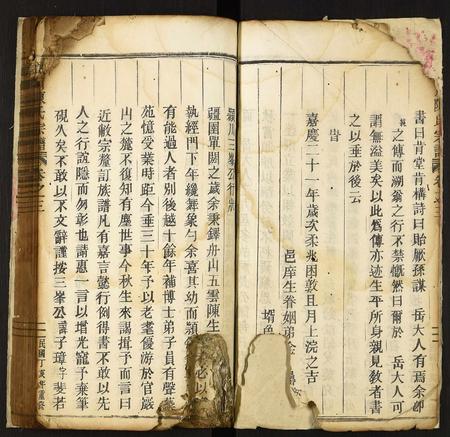 書曰肯堂肯構詩曰貽厥孫謀 岳大人有焉余卽
之傳而溯翁之行不禁慨然曰爾於 岳大人可
謂無溢美矣以此爲傳亦述生平所身親見敎者書
之以垂於後云
旹
嘉慶二十一年歲次柔兆困敦且月上浣之吉
邑庠生眷姻弟
壻
潁川三峯公行狀
疆圉單閼之歲余秉鐸舟山五雲陳生
執經門下年纔舞象勺余喜其幼而穎
有能過人者別後越十餘年補博士弟子員有聲
施憶受業時距今垂三十年予以老耄優游於官巖
山之麓不復知有塵世事今秋生來謁揖予而言曰
近敝宗釐訂族譜凡有嘉言懿行例得書不敢以先
人之行誼隱而勿彰也請惠一言以增光寵予棄筆
硯久矣不敢以不文辭謹按三峯公諱子璋字斐若
陳氏宗譜 卷之三
民國丁亥年重修